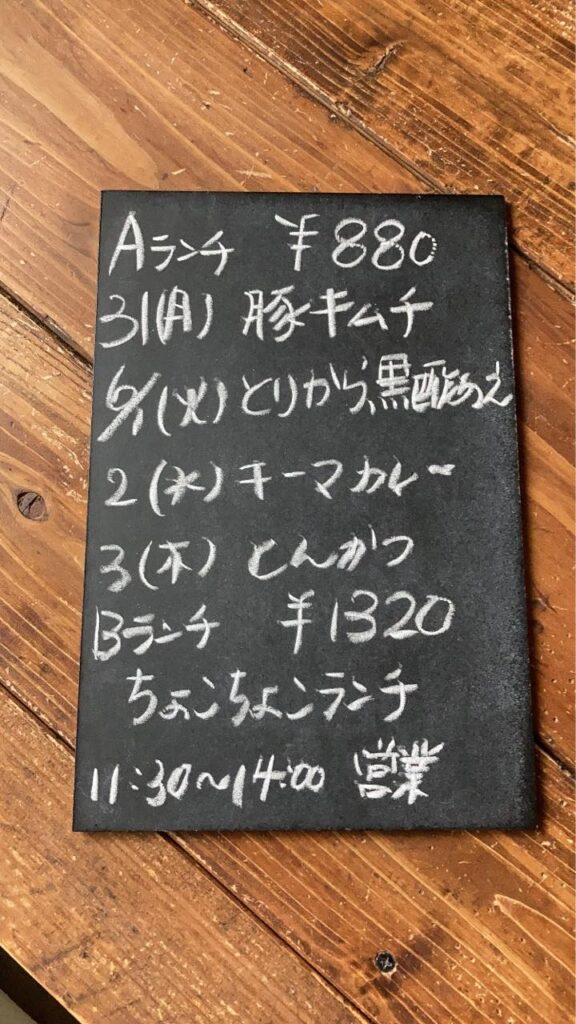 Aランチ ¥880
31(月) 豚キムチ
6/1(火) とりから黒酢あえ
2(水) キーマカレー
3(木) とんかつ
Bランチ ¥1320
ちょこちょこランチ
11:30〜14:00 営業